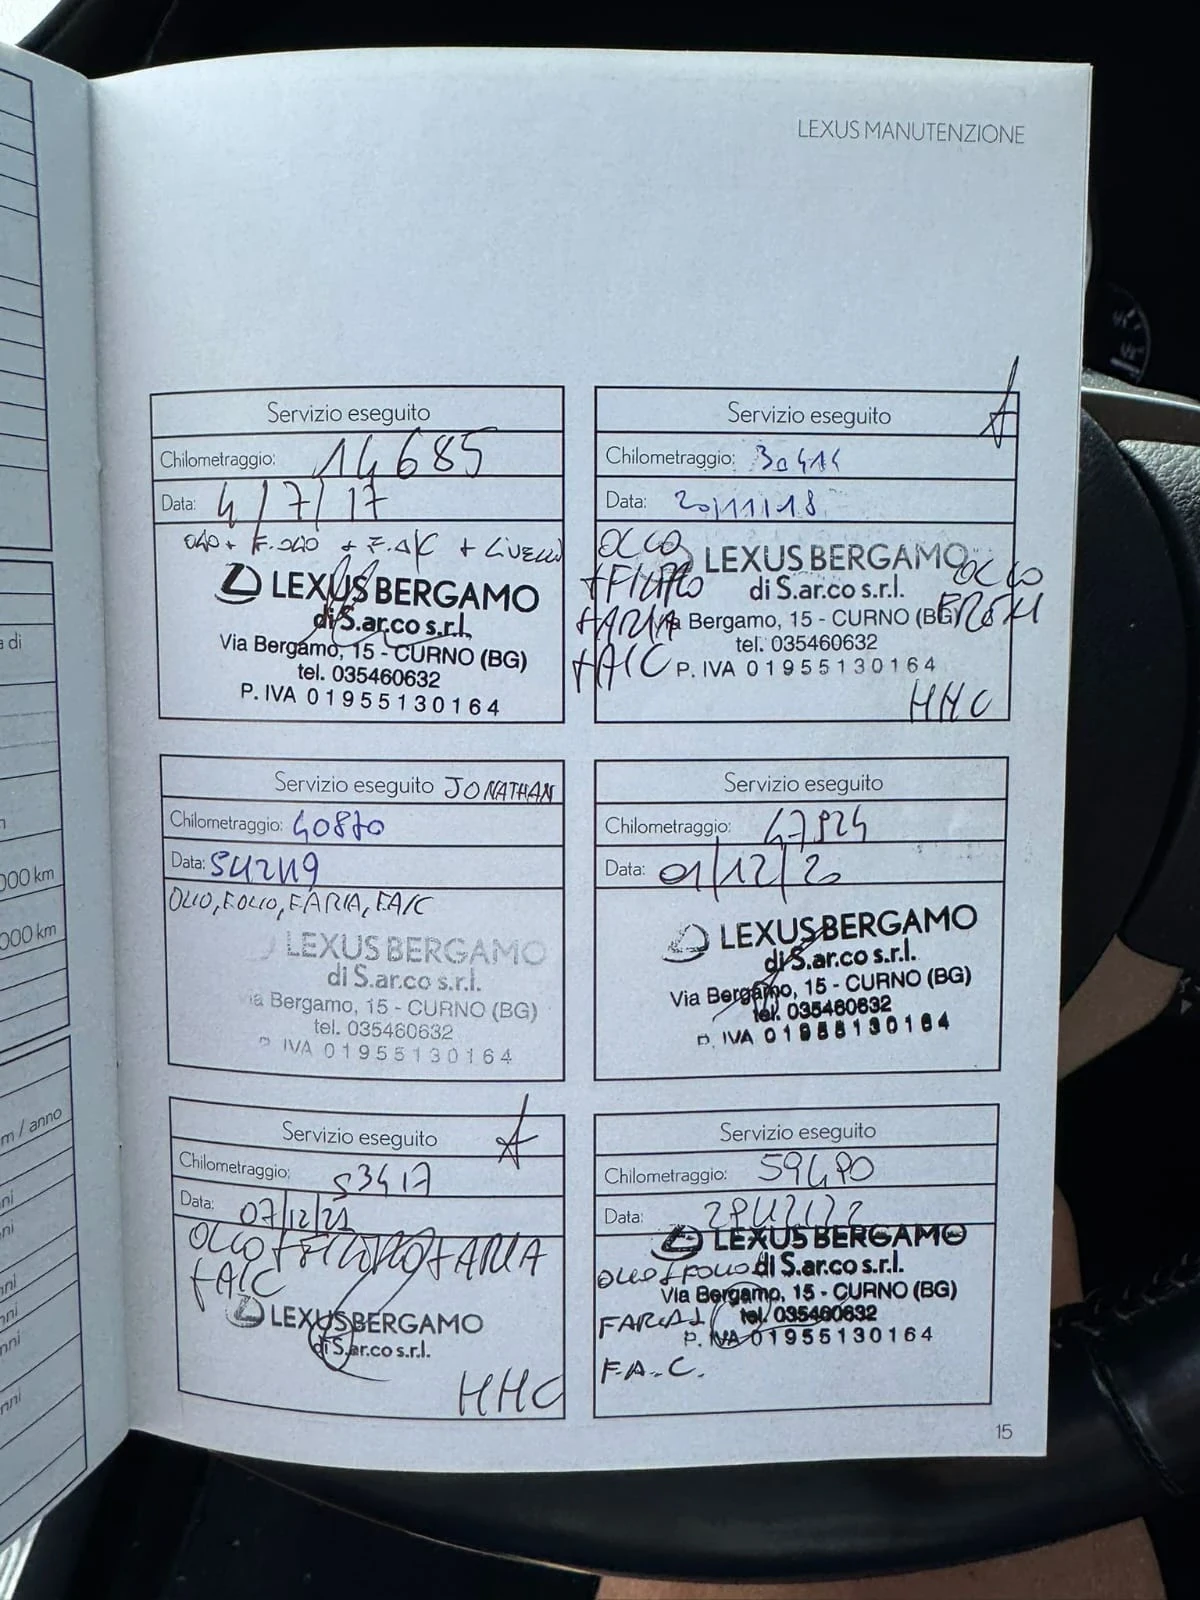 LEXUS MANUTENZIONE
Servizio eseguito
Chilometraggio: 14685
Data: 4/7/17
OLIO + F. OLIO + F. A/C + LIVELLI
LEXUS BERGAMO
di S.ar.co s.r.l.
Via Bergamo, 15 - CURNO (BG)
tel. 035460632
P. IVA 01955130164
Servizio eseguito
Chilometraggio: 30414
Data: 20/11/18
OLIO
+FILTRO
+ARIA
+A/C
OLIO
FRENI
LEXUS BERGAMO
di S.ar.co s.r.l.
a Bergamo, 15 - CURNO (BG)
tel. 035460632
P. IVA 01955130164
HHC
Servizio eseguito JONATHAN
Chilometraggio: 40870
Data: 5/12/19
OLIO, F.OLIO, F.ARIA, F.A/C
LEXUS BERGAMO
di S.ar.co s.r.l.
Via Bergamo, 15 - CURNO (BG)
tel. 035460632
P. IVA 01955130164
Servizio eseguito
Chilometraggio: 47924
Data: 01/12/20
LEXUS BERGAMO
di S.ar.co s.r.l.
Via Bergamo, 15 - CURNO (BG)
tel. 035460632
P. IVA 01955130164
Servizio eseguito
Chilometraggio: 53417
Data: 07/12/21
OLIO + FILTRO + ARIA
+A/C
LEXUS BERGAMO
di S.ar.co s.r.l.
HHC
Servizio eseguito
Chilometraggio: 59490
Data:
LEXUS BERGAMO
di S.ar.co s.r.l.
Via Bergamo, 15 - CURNO (BG)
tel. 035460632
P. IVA 01955130164
OLIO+F.OLIO
F.ARIA+
F.A.C.
15
di
000 km
000 km
m / anno